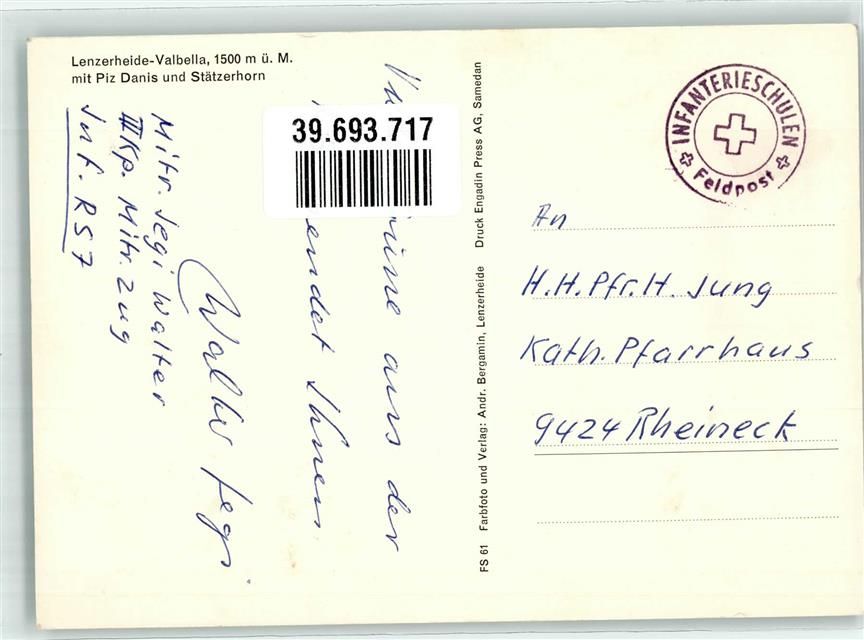 Lenzerheide-Valbella, 1500 m ü. M.
mit Piz Danis und Stätzerhorn
Mitr. Jegi Walter
III Kp. Mitr. Zug
Inf. RS 7
39.693.717
aus der
Ihnen
Walter Jegi
FS 61 Farbfoto und Verlag: Andr. Bergamin, Lenzerheide Druck Engadin Press AG, Samedan
INFANTERIESCHULEN
Feldpost
An
H.H. Pfr. H. Jung
Kath. Pfarrhaus
9424 Rheineck